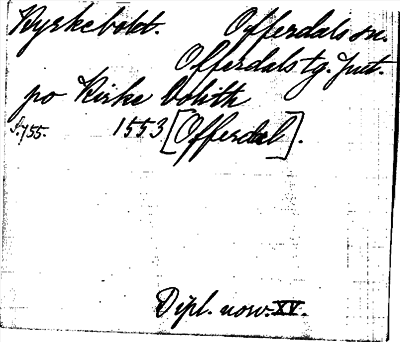 Kyrkebolet. Offerdals sn.
Offerdals tg. Jmt.
po Kirke bolith
S. 755. 1553 [Offerdal].
Dipl. norv. XV.